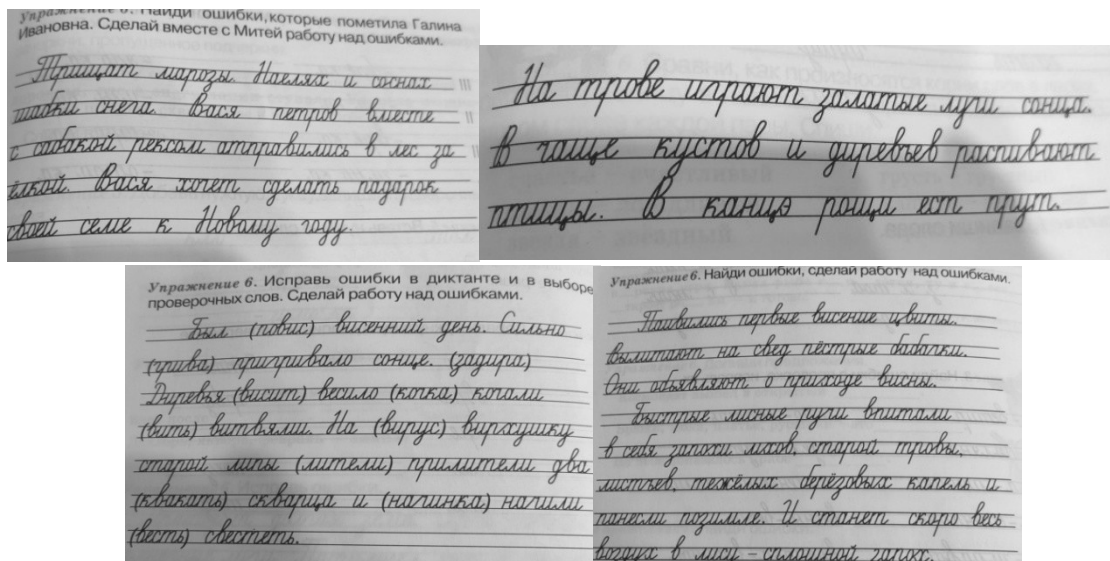 Упражнение 6. Найди ошибки, которые пометила Галина
Ивановна. Сделай вместе с Митей работу над ошибками.
Трищат марозы. Наелях и соснах III
шабки снега. Вася петров вместе II
с сабакой рексом атправились в лес за II
ёлкой. Вася хочет сделать падарок
своей семе к Новому году.
На трове играют залатые луги сонца.
В чаще кустов и диревьев распивают
птицы. В канцэ рощи ест прут.
Упражнение 6. Исправь ошибки в диктанте и в выборе
проверочных слов. Сделай работу над ошибками.
Был (повис) висенний день. Сильно
(грива) пригривало сонце. (задира)
Диревья (висит) весило (копка) копали
(вить) витвями. На (вирус) вирхушку
старой липы (лители) прилители два
(квакать) скварца и (начинка) начили
(весть) свестеть.
Упражнение 6. Найди ошибки, сделай работу над ошибками.
Паивились первые висение цвиты.
Вылитают на свед пёстрые бабачки.
Они обьявляют о приходе висны.
Быстрые лисные ручи впитали
в себя запохи мхов, старой тровы,
листьев, тежёлых берёзовых капель и
панесли позимле. И станет скоро весь
воздух в лиси - сплошной запох.